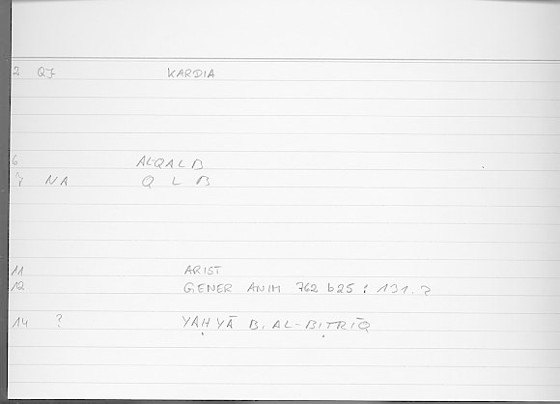 2 QJ KARDIA
6 ALQALB
7 NA Q L B
11 ARIST
12 GENER ANIM 762 b25 : 131.2
14 ? YAḤYĀ B. AL-BIṬRĪQ